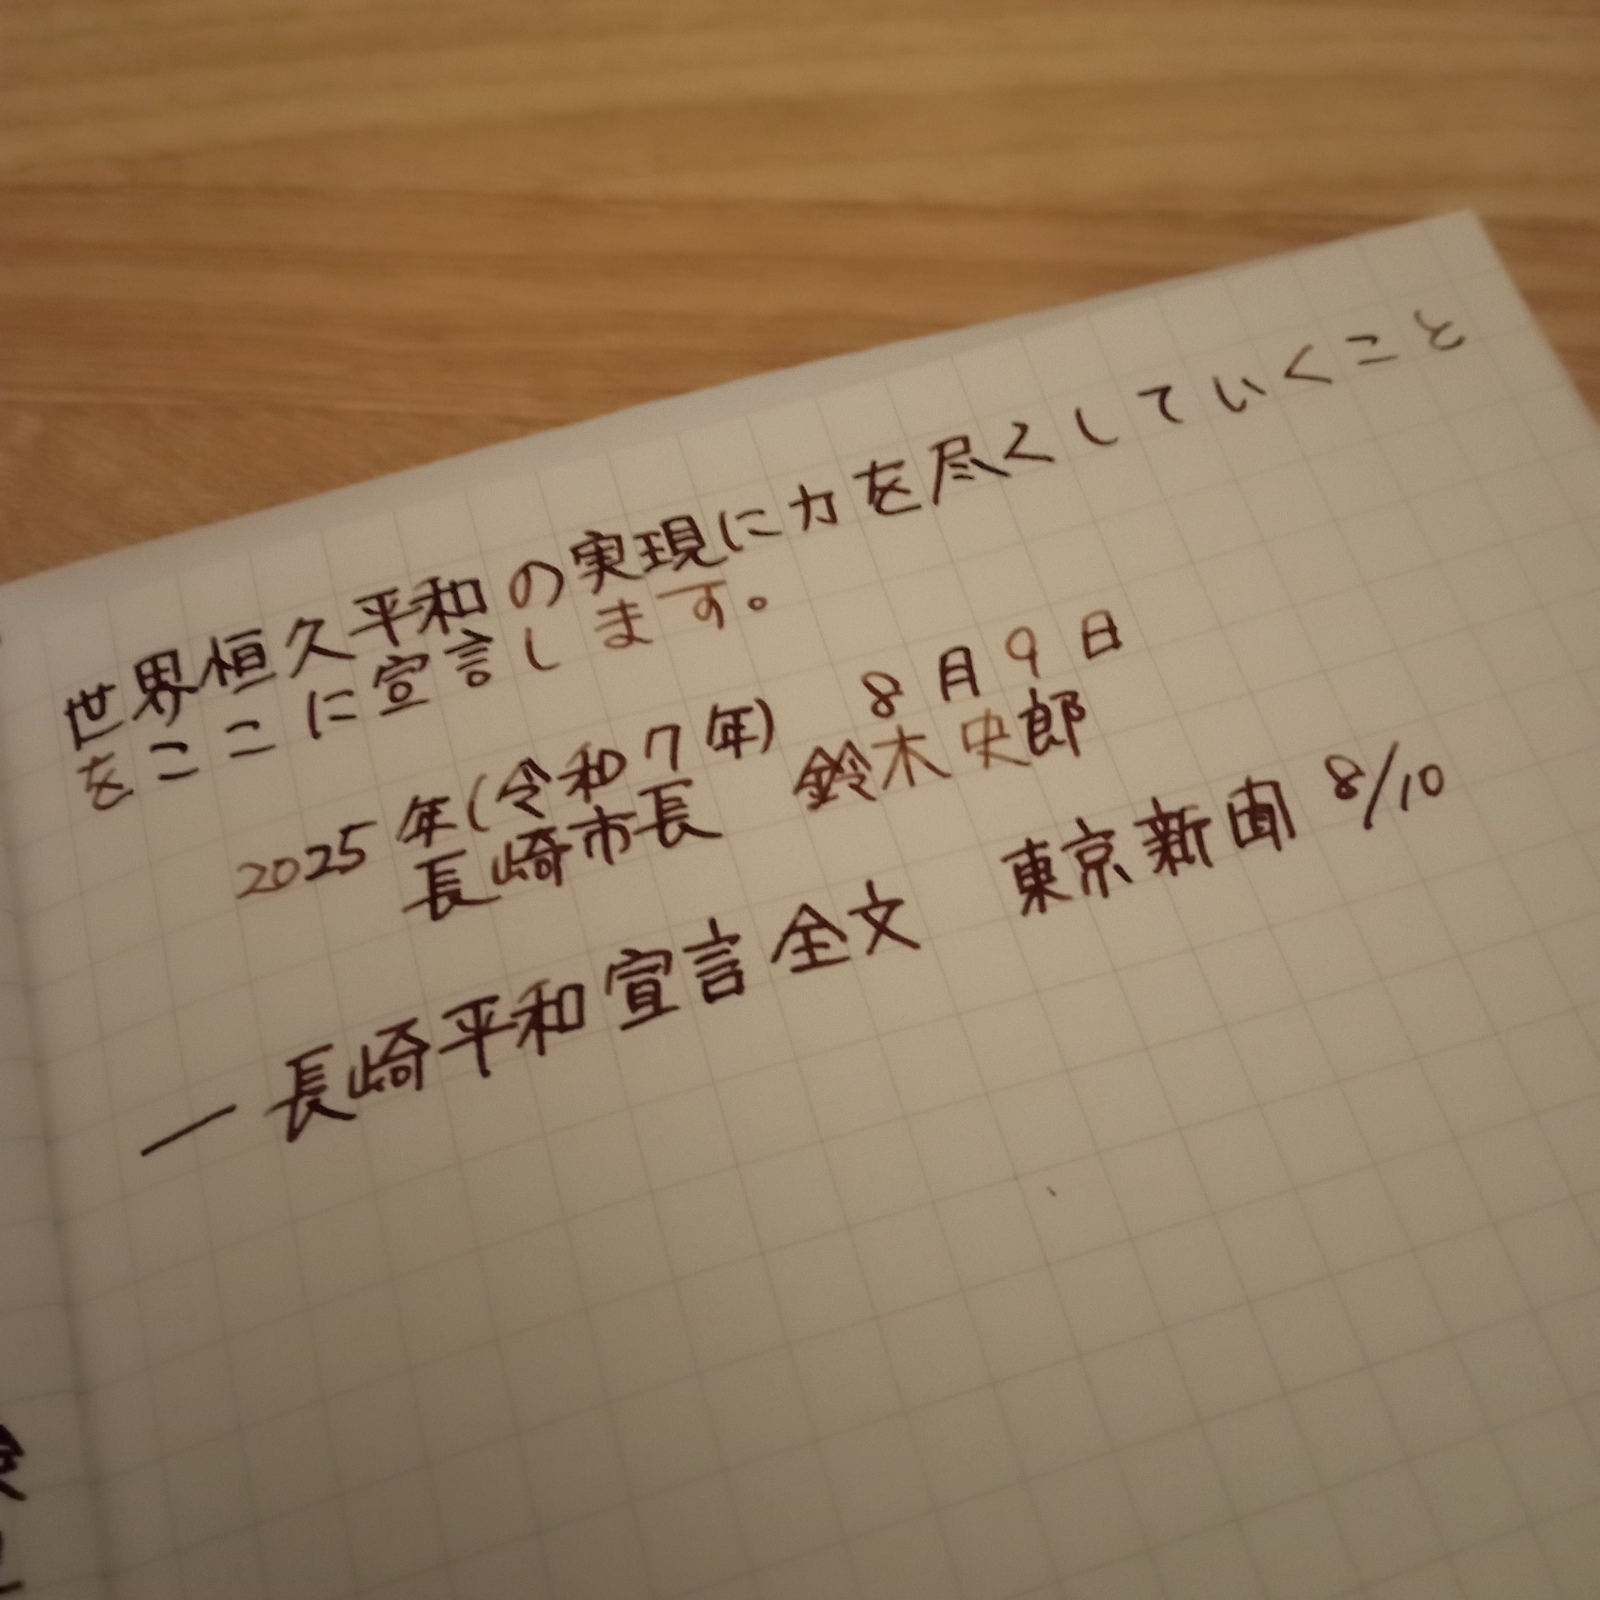 世界恒久平和の実現に力を尽くしていくこと
をここに宣言します。
2025年(令和7年) 8月9日
長崎市長 鈴木史郎
— 長崎平和宣言全文 東京新聞 8/10